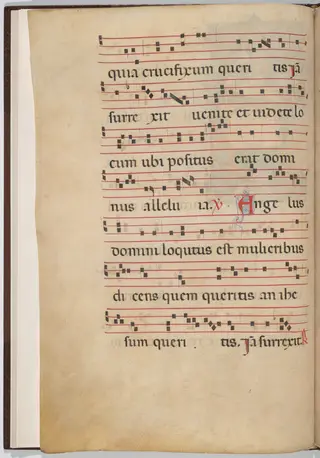 quia crucifixum queri tis Ja
surre xit venite et videte lo
cum ubi positus erat domi
nus allelu ia. V Ange lus
domini loqutus est mulieribus
di cens quem queritis an ihe
sum queri tis, Ja surrexit.